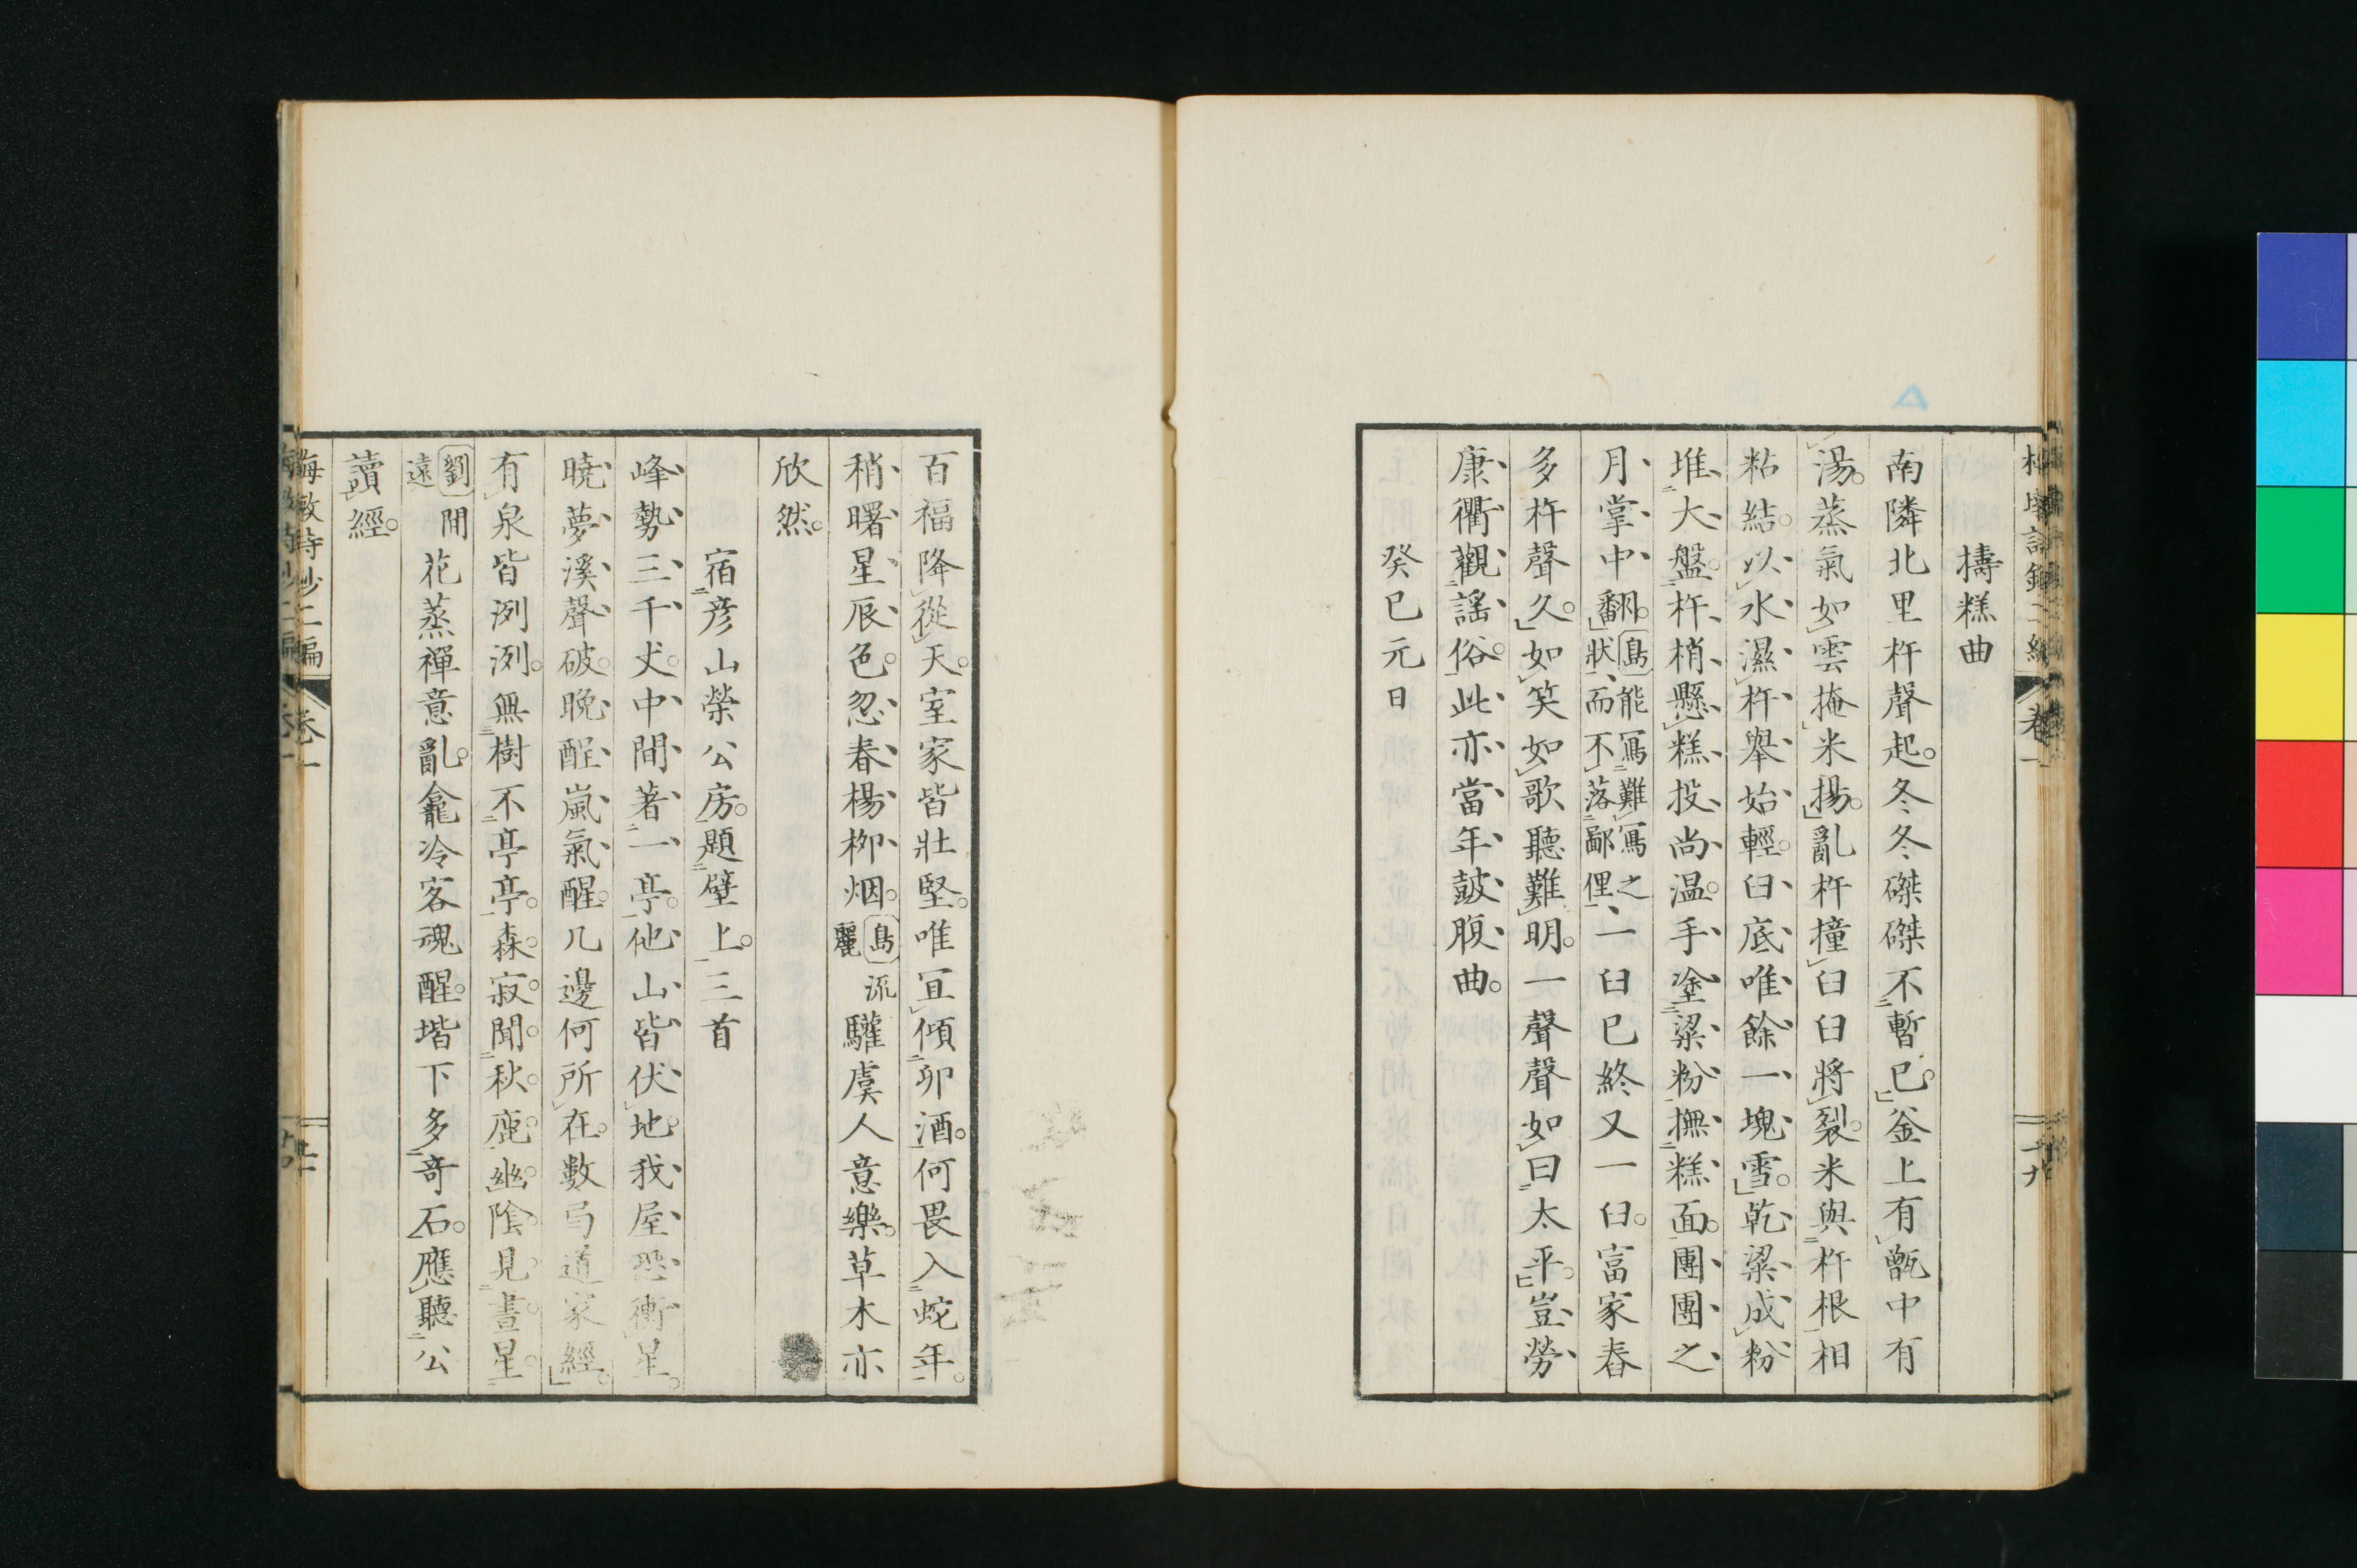 擣糕曲
南隣北里杵聲起。冬冬磔磔不暫已。釜上有甑中有
湯。蒸氣如雲掩米揚。亂杵撞臼臼將裂。米與杵根相
粘結。以水濕杵舉始輕。臼底唯餘一塊雪。乾粱成粉
堆大盤。杵梢懸糕投尚温。手塗粱粉撫糕面。團團之
月掌中翻。島能寫難寫之狀、而不落鄙俚、一臼已終又一臼。富家舂
多杵聲久。如笑如歌聽難明。一聲聲如曰太平。豈勞
康衢觀謠俗。此亦當年鼓腹曲。
癸巳元日
百福降從天。室家皆壯堅。唯宜傾卯酒。何畏入蛇年。
稍曙星辰色。忽春楊柳烟。島流麗驩虞人意樂。草木亦
欣然。
宿彦山榮公房。題壁上。三首
峰勢三千丈。中間著一亭。他山皆伏地。我屋恐衝星。
曉夢溪聲破。晩酲嵐氣醒。几邊何所在。數弓道家經。
有泉皆洌洌。無樹不亭亭。森寂聞秋鹿。幽陰見晝星。
劉閒遠花蒸禪意亂。龕冷客魂醒。堦下多奇石。應聽公
讀經。
海敬詩抄二編 卷一